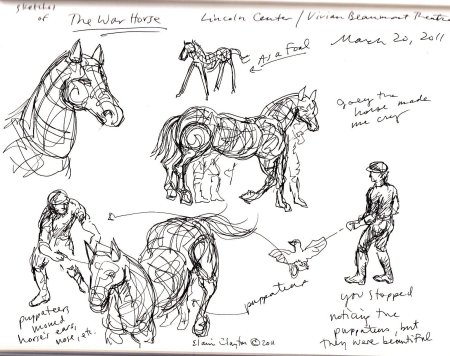 Sketches
of The War Horse
Lincoln Center / Vivian Beaumont Theatre
March 20, 2011
As a Foal
Joey the
horse made
me cry
puppeteers
moved
horse's ears,
nose, etc.
puppeteers
you stopped
noticing the
puppeteers, but
they were beautiful
Elaine Clayton ©2011